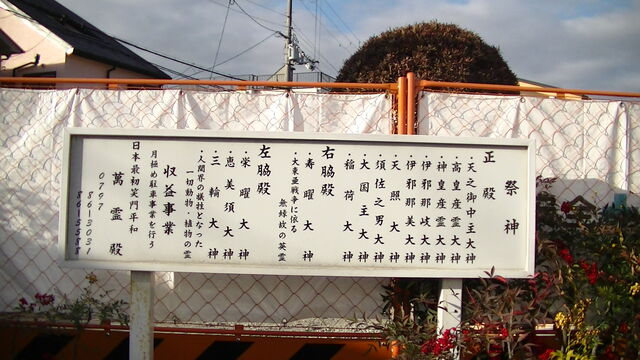 祭神
正殿
・天之御中主大神
・高皇産霊大神
・神皇産霊大神
・伊邪那岐大神
・伊邪那美大神
・天照大神
・須佐之男大神
・大国主大神
・稲荷大神
右脇殿
・寿曜大神
・大東亜戦争に依る
無縁故の英霊
左脇殿
・栄曜大神
・恵美須大神
・三輪大神
・人間界の犠牲となった
一切動物・植物の霊
収益事業
月極め駐車事業を行う
日本最初笑門平和
萬霊殿
0797
8613031
8615588